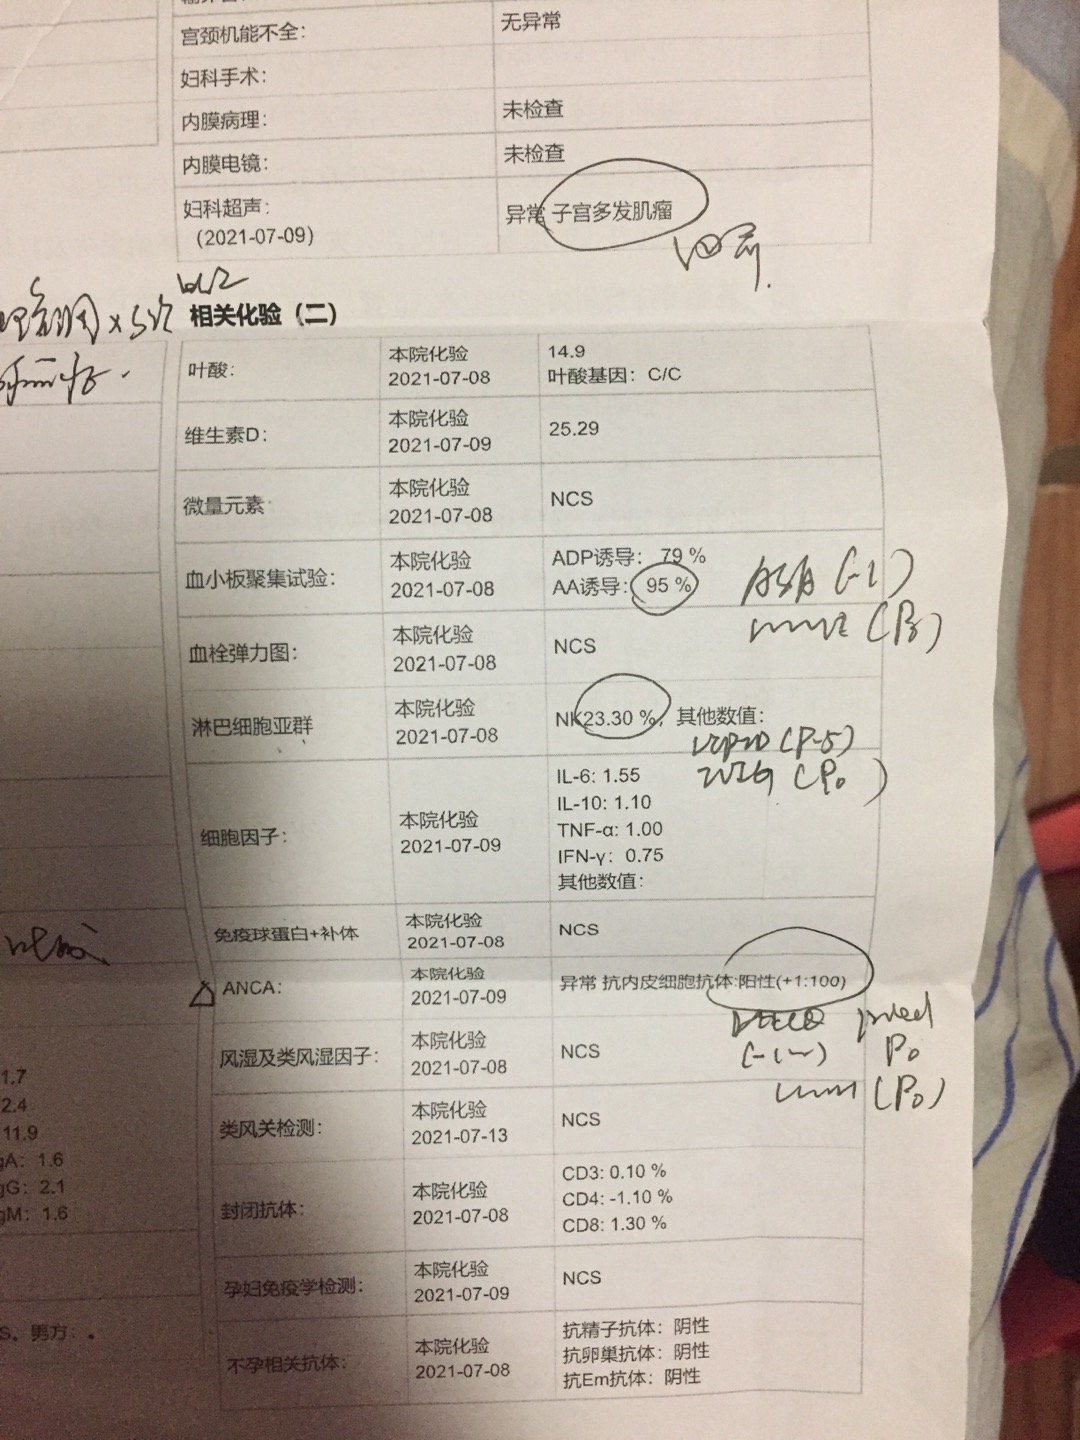 宫颈机能不全： 无异常
妇科手术：
内膜病理： 未检查
内膜电镜： 未检查
妇科超声： 异常 子宫多发肌瘤
（2021-07-09）
相关化验（二）
叶酸： 本院化验 14.9
2021-07-08 叶酸基因：C/C
维生素D： 本院化验 25.29
2021-07-09
微量元素 本院化验 NCS
2021-07-08
血小板聚集试验： 本院化验 ADP诱导： 79 %
2021-07-08 AA诱导： 95 %
ASA (-1)
血栓弹力图： 本院化验 NCS
2021-07-08
淋巴细胞亚群 本院化验 NK23.30 %，其他数值：
2021-07-08
(P-5)
(P0)
细胞因子： 本院化验 IL-6: 1.55
2021-07-09 IL-10: 1.10
TNF-α: 1.00
IFN-γ：0.75
其他数值：
免疫球蛋白+补体 本院化验 NCS
2021-07-08
ANCA： 本院化验 异常 抗内皮细胞抗体:阳性(+1:100)
2021-07-09
pred
P0
(P0)
风湿及类风湿因子： 本院化验 NCS
2021-07-08
类风关检测： 本院化验 NCS
2021-07-13
封闭抗体： 本院化验 CD3: 0.10 %
2021-07-08 CD4: -1.10 %
CD8: 1.30 %
孕妇免疫学检测： 本院化验 NCS
2021-07-09
不孕相关抗体： 本院化验 抗精子抗体：阴性
2021-07-08 抗卵巢抗体：阴性
抗Em抗体：阴性
1.7
2.4
11.9
gA：1.6
gG：2.1
gM：1.6
S。男方：。